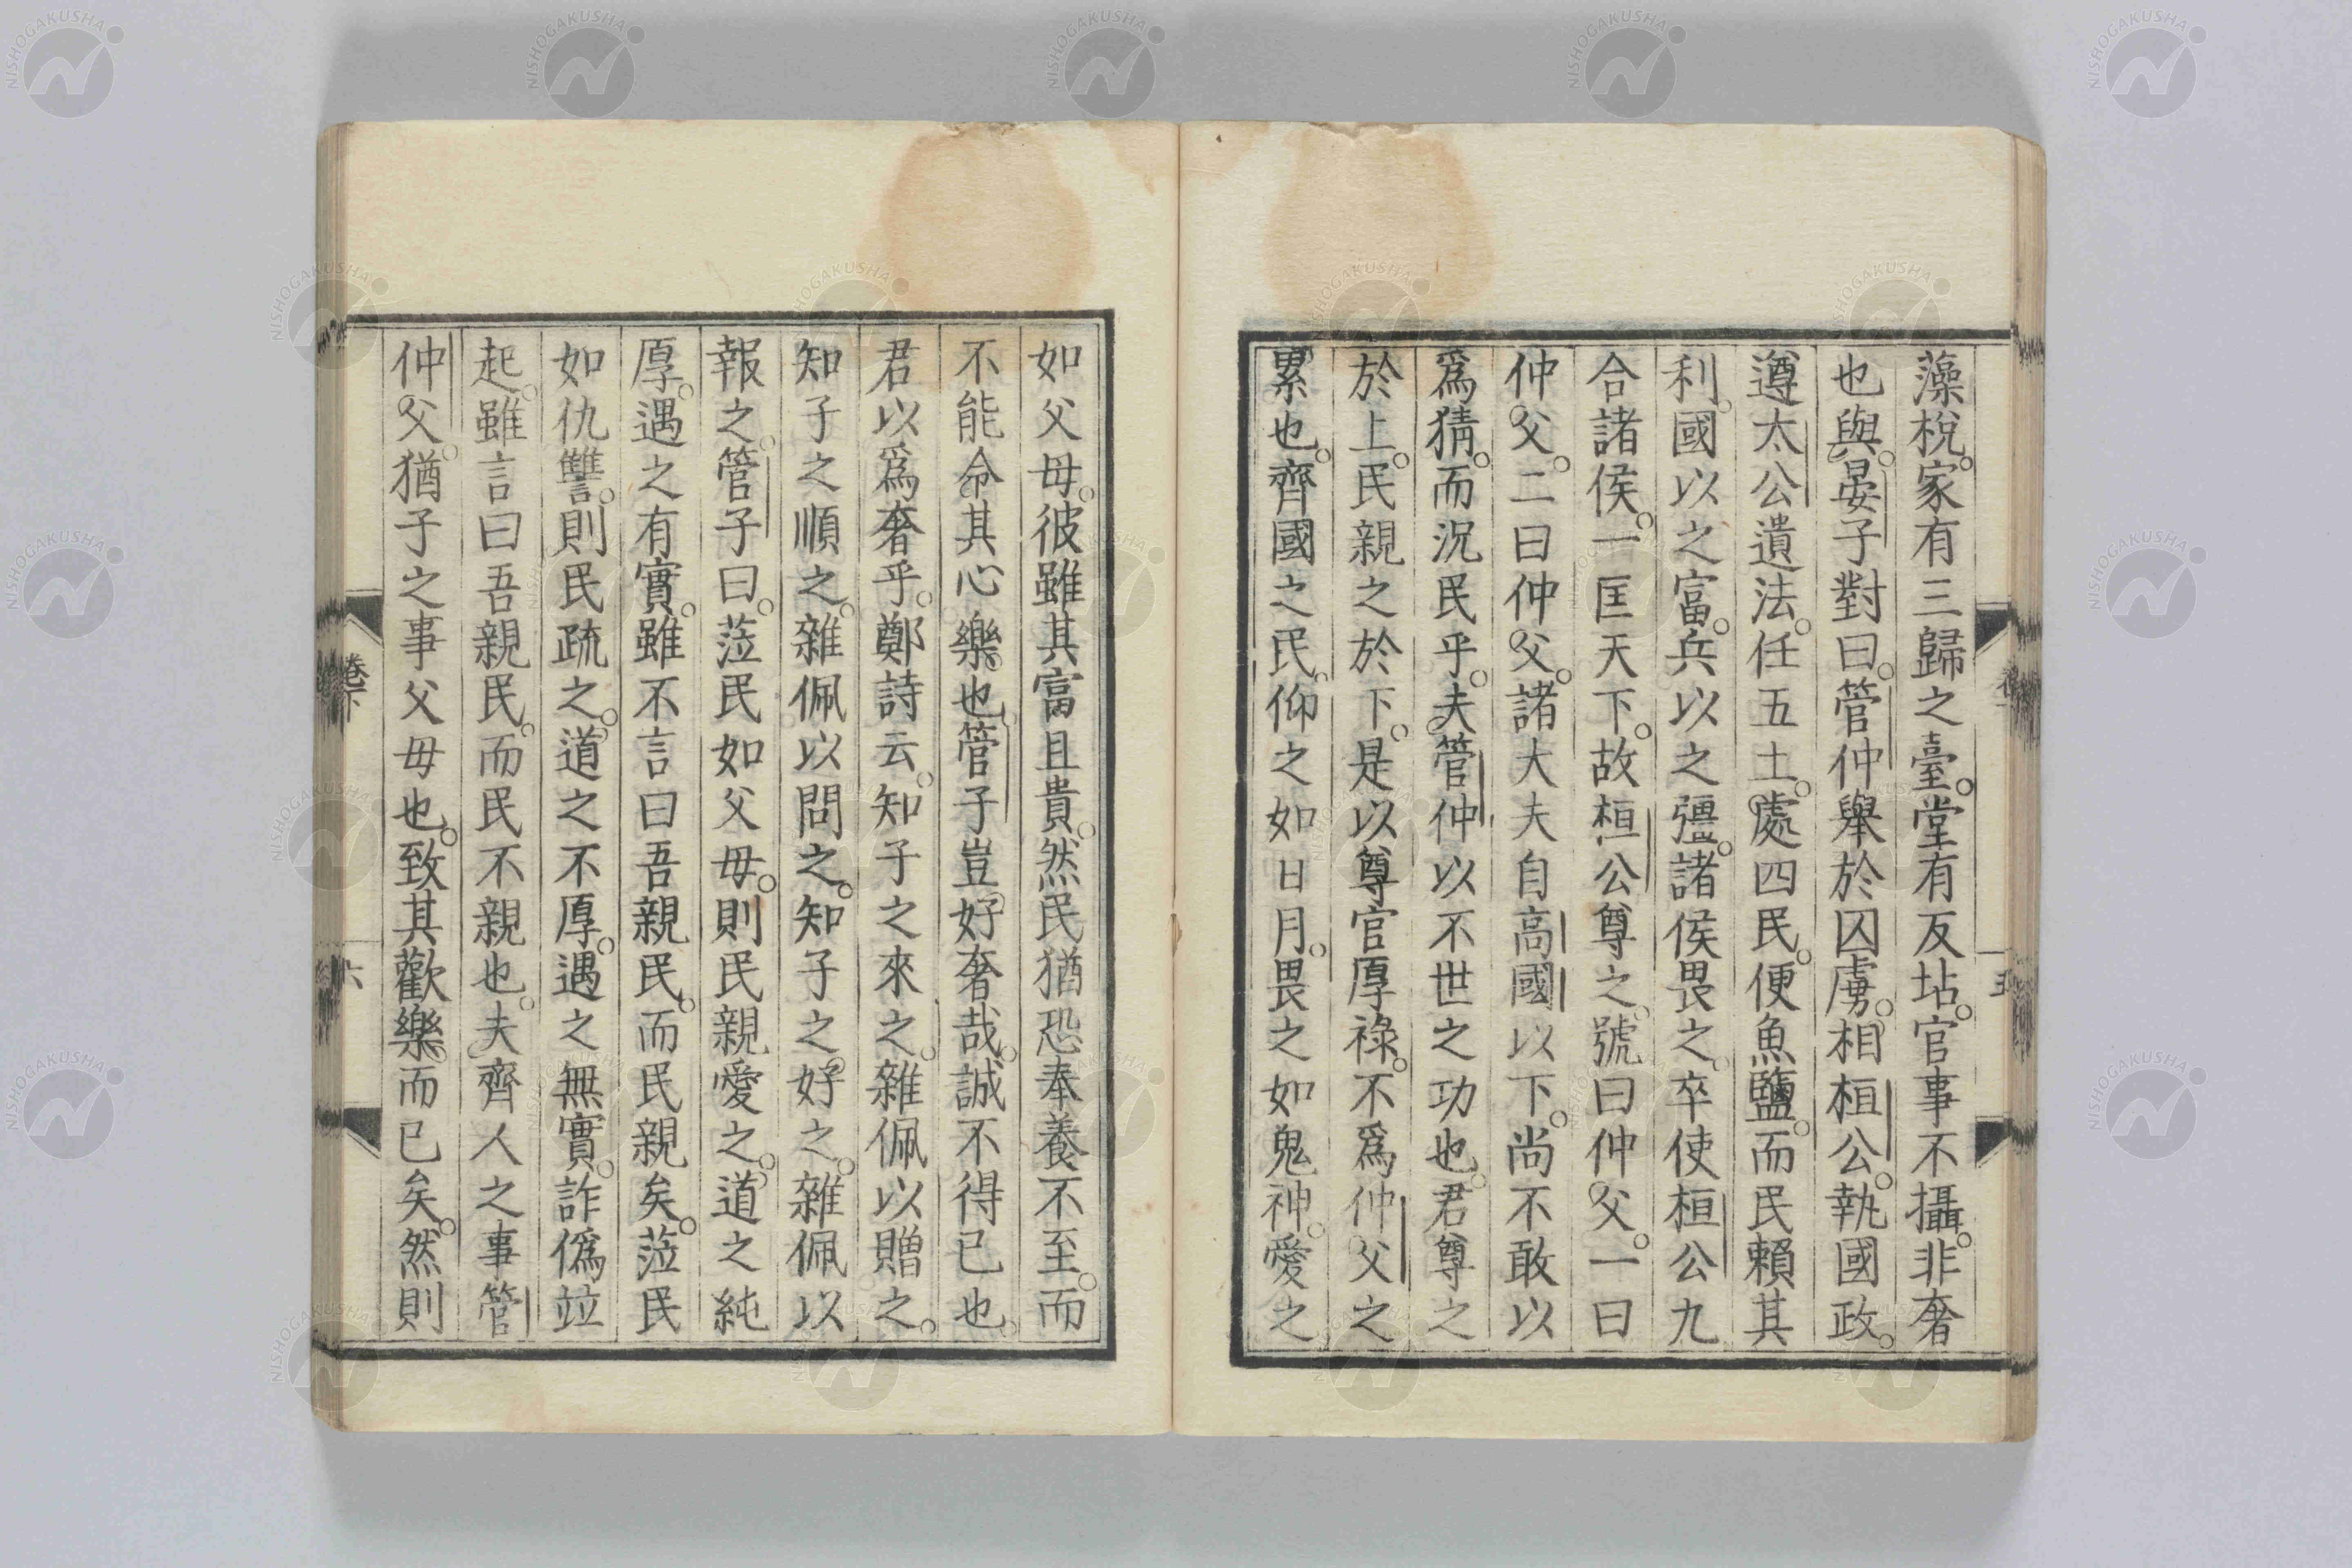 藻梲。家有三歸之臺。堂有反坫。官事不攝。非奢
也與。晏子對曰。管仲舉於囚虜。相桓公。執國政。
遵太公遺法。任五土。處四民。便魚鹽。而民賴其
利。國以之富。兵以之彊。諸侯畏之。卒使桓公九
合諸侯。一匡天下。故桓公尊之。號曰仲父。一曰
仲父。二曰仲父。諸大夫自高國以下。尚不敢以
爲猜。而況民乎。夫管仲以不世之功也。君尊之
於上。民親之於下。是以尊官厚祿。不爲仲父之
累也。齊國之民。仰之如日月。畏之如鬼神。愛之
如父母。彼雖其富且貴。然民猶恐奉養不至。而
不能命其心樂也。管子豈好奢哉。誠不得已也。
君以爲奢乎。鄭詩云。知子之來之。雜佩以贈之。
知子之順之。雜佩以問之。知子之好之。雜佩以
報之。管子曰。蒞民如父母。則民親愛之。道之純
厚。遇之有實。雖不言曰吾親民。而民親矣。蒞民
如仇讐。則民疏之。道之不厚。遇之無實。詐僞竝
起。雖言曰吾親民。而民不親也。夫齊人之事管
仲父。猶子之事父母也。致其歡樂。而已矣。然則
卷下
六
五
NISHOGAKUSHA